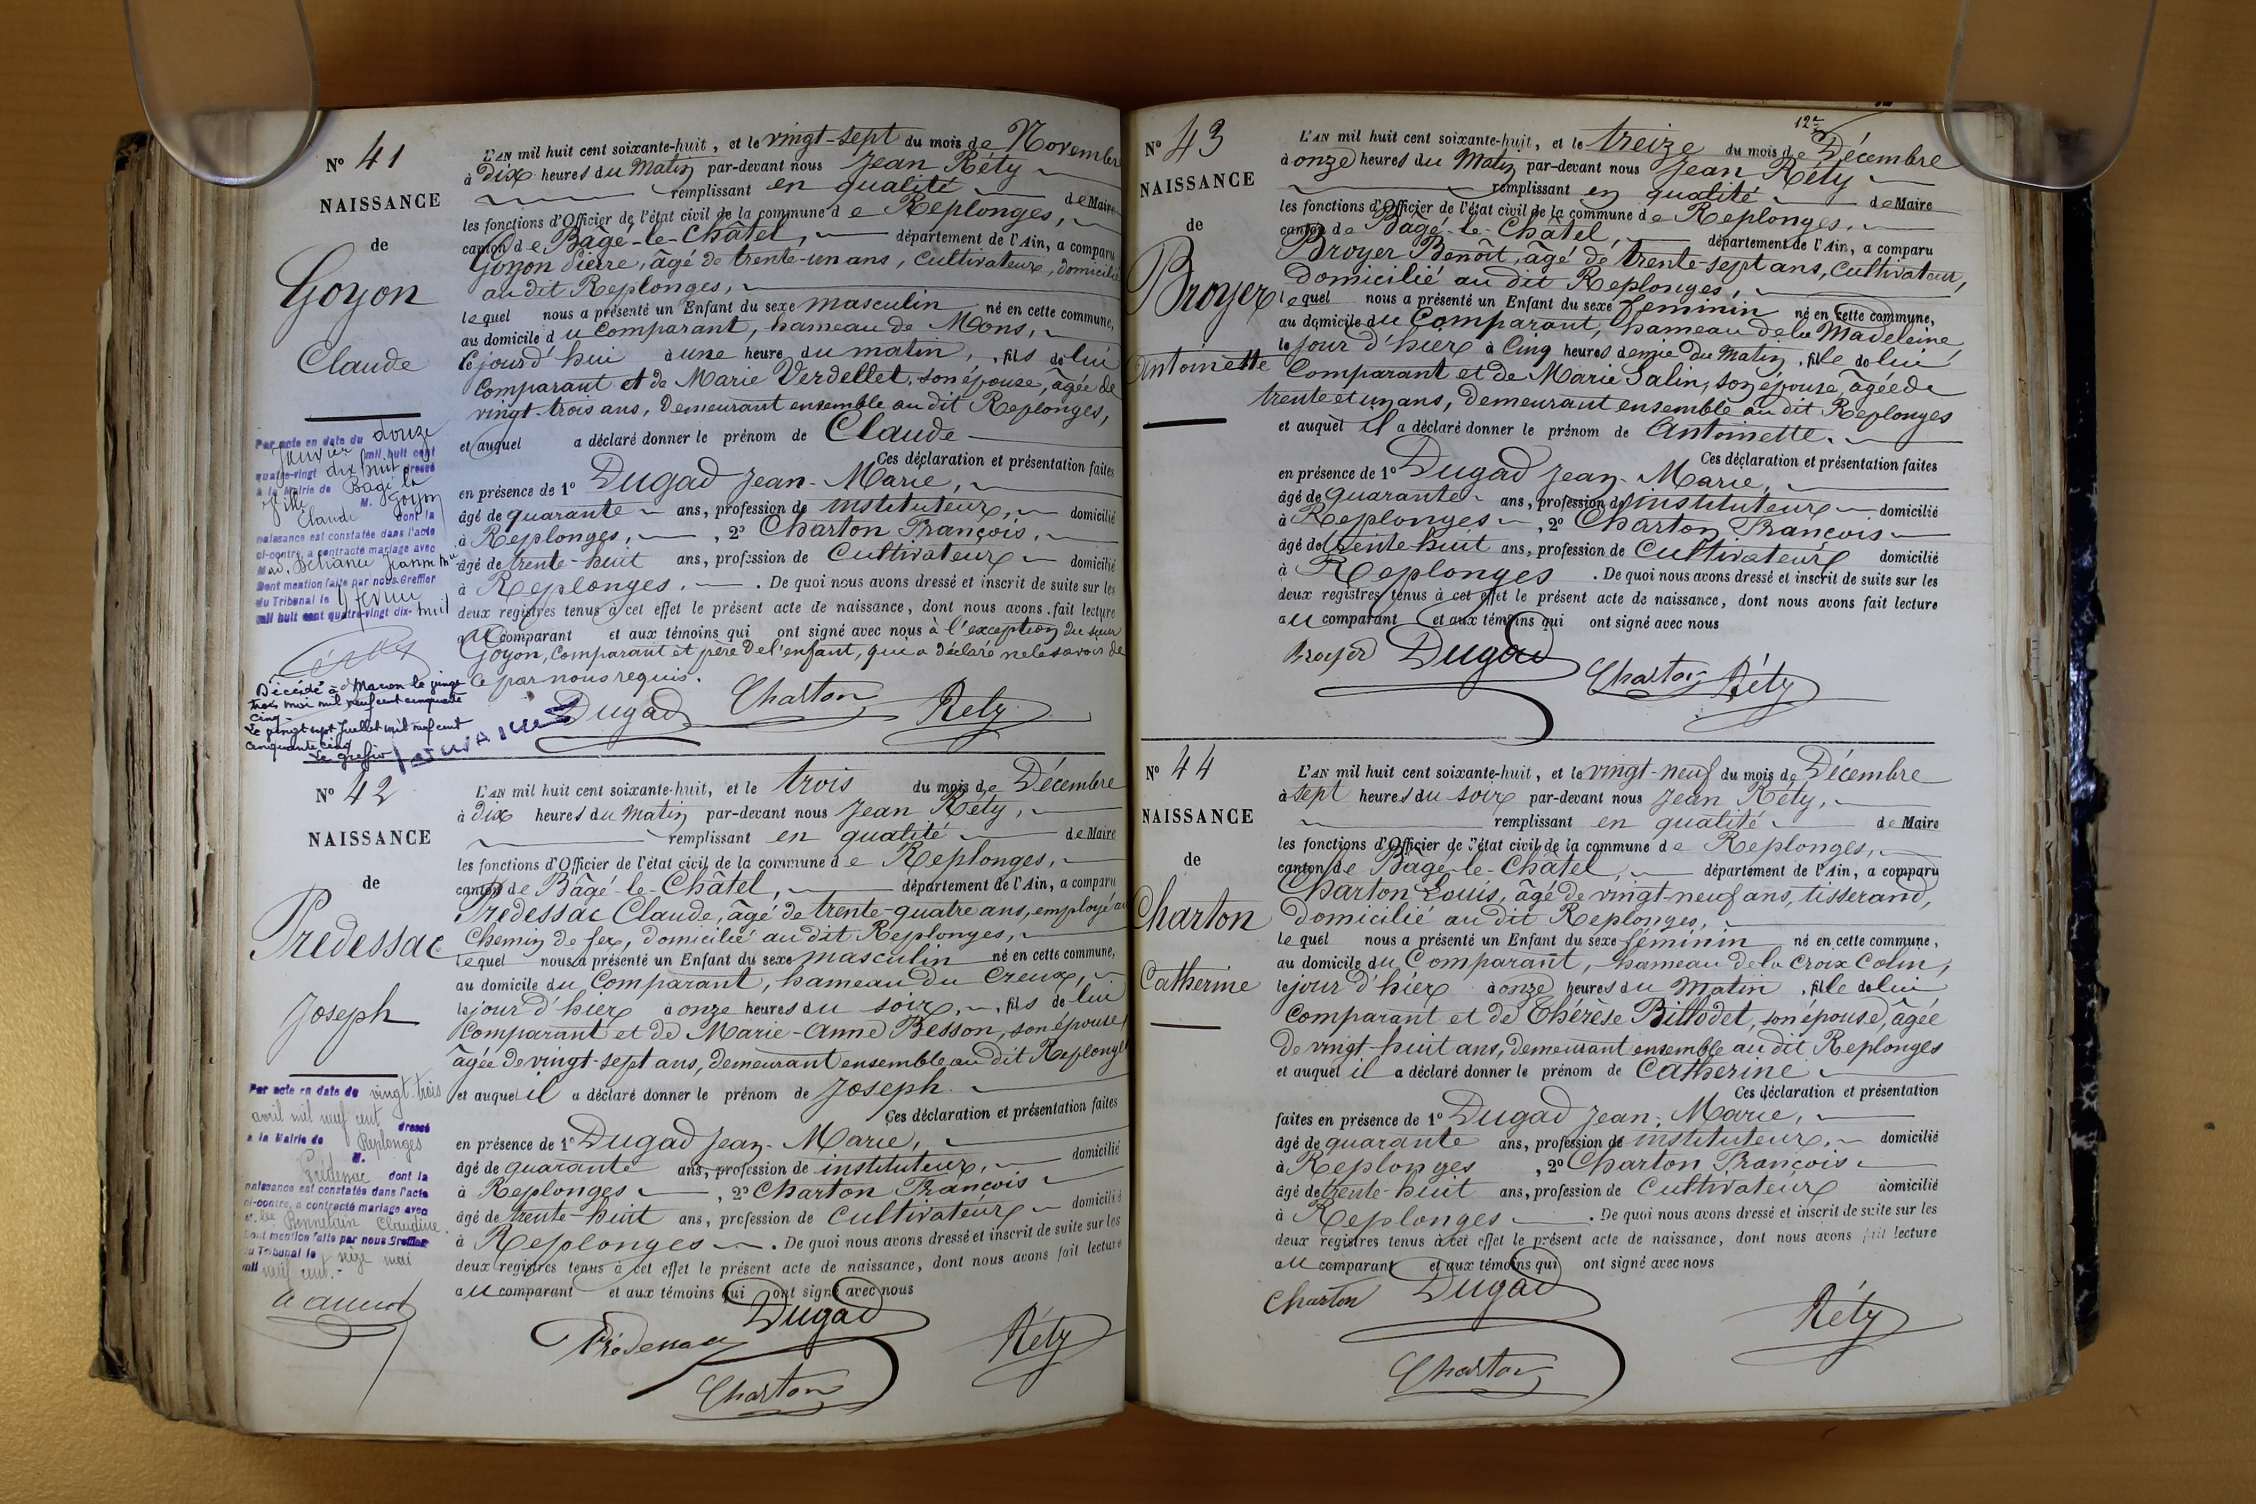 N° 41
NAISSANCE
de
Goyon
Claude
L'AN mil huit cent soixante-huit, et le vingt-sept du mois de Novembre
à dix heures du Matin par-devant nous Jean Réty
remplissant en qualité de Maire
les fonctions d'Officier de l'état civil de la commune de Replonges,
canton de Bâgé-le-Châtel, département de l'Ain, a comparu
Goyon Pierre, âgé de trente-un ans, cultivateur, domicilié
au dit Replonges,
lequel nous a présenté un Enfant du sexe masculin né en cette commune,
au domicile du Comparant, hameau de Mons,
le jourd'hui à une heure du matin, fils de lui
Comparant et de Marie Verdellet, son épouse, âgée de
vingt-trois ans, demeurant ensemble au dit Replonges,
et auquel a déclaré donner le prénom de Claude
Ces déclaration et présentation faites
en présence de 1° Dugad Jean-Marie,
âgé de quarante ans, profession de instituteur, domicilié
à Replonges, , 2° Charton François,
âgé de trente-huit ans, profession de Cultivateur domicilié
à Replonges. . De quoi nous avons dressé et inscrit de suite sur les
deux registres tenus à cet effet le présent acte de naissance, dont nous avons fait lecture
au comparant et aux témoins qui ont signé avec nous à l'exception du sieur
Goyon, Comparant et père de l'enfant, qui a déclaré ne le savoir de
ce par nous requis.
Dugad Charton Réty
Par acte en date du douze
Janvier mil huit cent
quatre-vingt dix huit dressé
à la Mairie de Bagé la
Ville M. Goyon
Claude dont la
naissance est constatée dans l'acte
ci-contre, a contracté mariage avec
Mad. Jeanne Mie
Dont mention faite par nous Greffier
du Tribunal le
mil huit cent quatre-vingt dix-huit
Décédé à Macon le vingt
trois mai mil neuf cent cinquante
cinq
Le vingt sept Juillet mil neuf cent
cinquante cinq
Le greffier
N° 42
NAISSANCE
de
Prédessac
Joseph
L'AN mil huit cent soixante-huit, et le trois du mois de Décembre
à dix heures du Matin par-devant nous Jean Réty,
remplissant en qualité de Maire
les fonctions d'Officier de l'état civil de la commune de Replonges,
canton de Bâgé-le-Châtel, département de l'Ain, a comparu
Prédessac Claude, âgé de trente-quatre ans, employé au
Chemin de fer, domicilié au dit Replonges,
lequel nous a présenté un Enfant du sexe masculin né en cette commune,
au domicile du Comparant, hameau du Creux,
le jour d'hier à onze heures du soir, fils de lui
Comparant et de Marie-Anne Besson, son épouse,
âgée de vingt-sept ans, demeurant ensemble au dit Replonges
et auquel il a déclaré donner le prénom de Joseph
Ces déclaration et présentation faites
en présence de 1° Dugad Jean-Marie,
âgé de quarante ans, profession de instituteur, domicilié
à Replonges , 2° Charton François
âgé de trente-huit ans, profession de Cultivateur domicilié
à Replonges . De quoi nous avons dressé et inscrit de suite sur les
deux registres tenus à cet effet le présent acte de naissance, dont nous avons fait lecture
au comparant et aux témoins qui ont signé avec nous
Dugad
Prédessac Réty
Charton
Par acte en date du vingt-trois
avril mil neuf cent dressé
à la Mairie de Replonges
M.
Prédessac dont la
naissance est constatée dans l'acte
ci-contre, a contracté mariage avec
Claudine
Dont mention faite par nous Greffier
du Tribunal le seize mai
mil neuf cent.
12e
N° 43
NAISSANCE
de
Broyer
Antoinette
L'AN mil huit cent soixante-huit, et le treize du mois de Décembre
à onze heures du Matin par-devant nous Jean Réty
remplissant en qualité de Maire
les fonctions d'Officier de l'état civil de la commune de Replonges,
canton de Bâgé-le-Châtel, département de l'Ain, a comparu
Broyer Benoît, âgé de trente-sept ans, Cultivateur,
domicilié au dit Replonges,
lequel nous a présenté un Enfant du sexe féminin né en cette commune,
au domicile du Comparant, hameau de la Madeleine
le jour d'hier à Cinq heures demie du Matin, fille de lui
Comparant et de Marie Salin, son épouse, âgée de
trente et un ans, demeurant ensemble au dit Replonges
et auquel il a déclaré donner le prénom de Antoinette.
Ces déclaration et présentation faites
en présence de 1° Dugad Jean-Marie,
âgé de quarante ans, profession de instituteur domicilié
à Replonges , 2° Charton François
âgé de trente-huit ans, profession de Cultivateur domicilié
à Replonges . De quoi nous avons dressé et inscrit de suite sur les
deux registres tenus à cet effet le présent acte de naissance, dont nous avons fait lecture
au comparant et aux témoins qui ont signé avec nous
Broyer Dugad Charton Réty
N° 44
NAISSANCE
de
Charton
Catherine
L'AN mil huit cent soixante-huit, et le vingt-neuf du mois de Décembre
à sept heures du soir par-devant nous Jean Réty,
remplissant en qualité de Maire
les fonctions d'Officier de l'état civil de la commune de Replonges,
canton de Bâgé-le-Châtel, département de l'Ain, a comparu
Charton Louis, âgé de vingt-neuf ans, tisserand,
domicilié au dit Replonges,
lequel nous a présenté un Enfant du sexe féminin né en cette commune,
au domicile du Comparant, hameau de la Croix Colin,
le jour d'hier à onze heures du Matin, fille de lui
Comparant et de Thérèse Billodet, son épouse, âgée
de vingt-huit ans, demeurant ensemble au dit Replonges
et auquel il a déclaré donner le prénom de Catherine
Ces déclaration et présentation
faites en présence de 1° Dugad Jean-Marie,
âgé de quarante ans, profession de instituteur, domicilié
à Replonges , 2° Charton François
âgé de trente-huit ans, profession de Cultivateur domicilié
à Replonges . De quoi nous avons dressé et inscrit de suite sur les
deux registres tenus à cet effet le présent acte de naissance, dont nous avons fait lecture
au comparant et aux témoins qui ont signé avec nous
Charton Dugad Réty
Charton